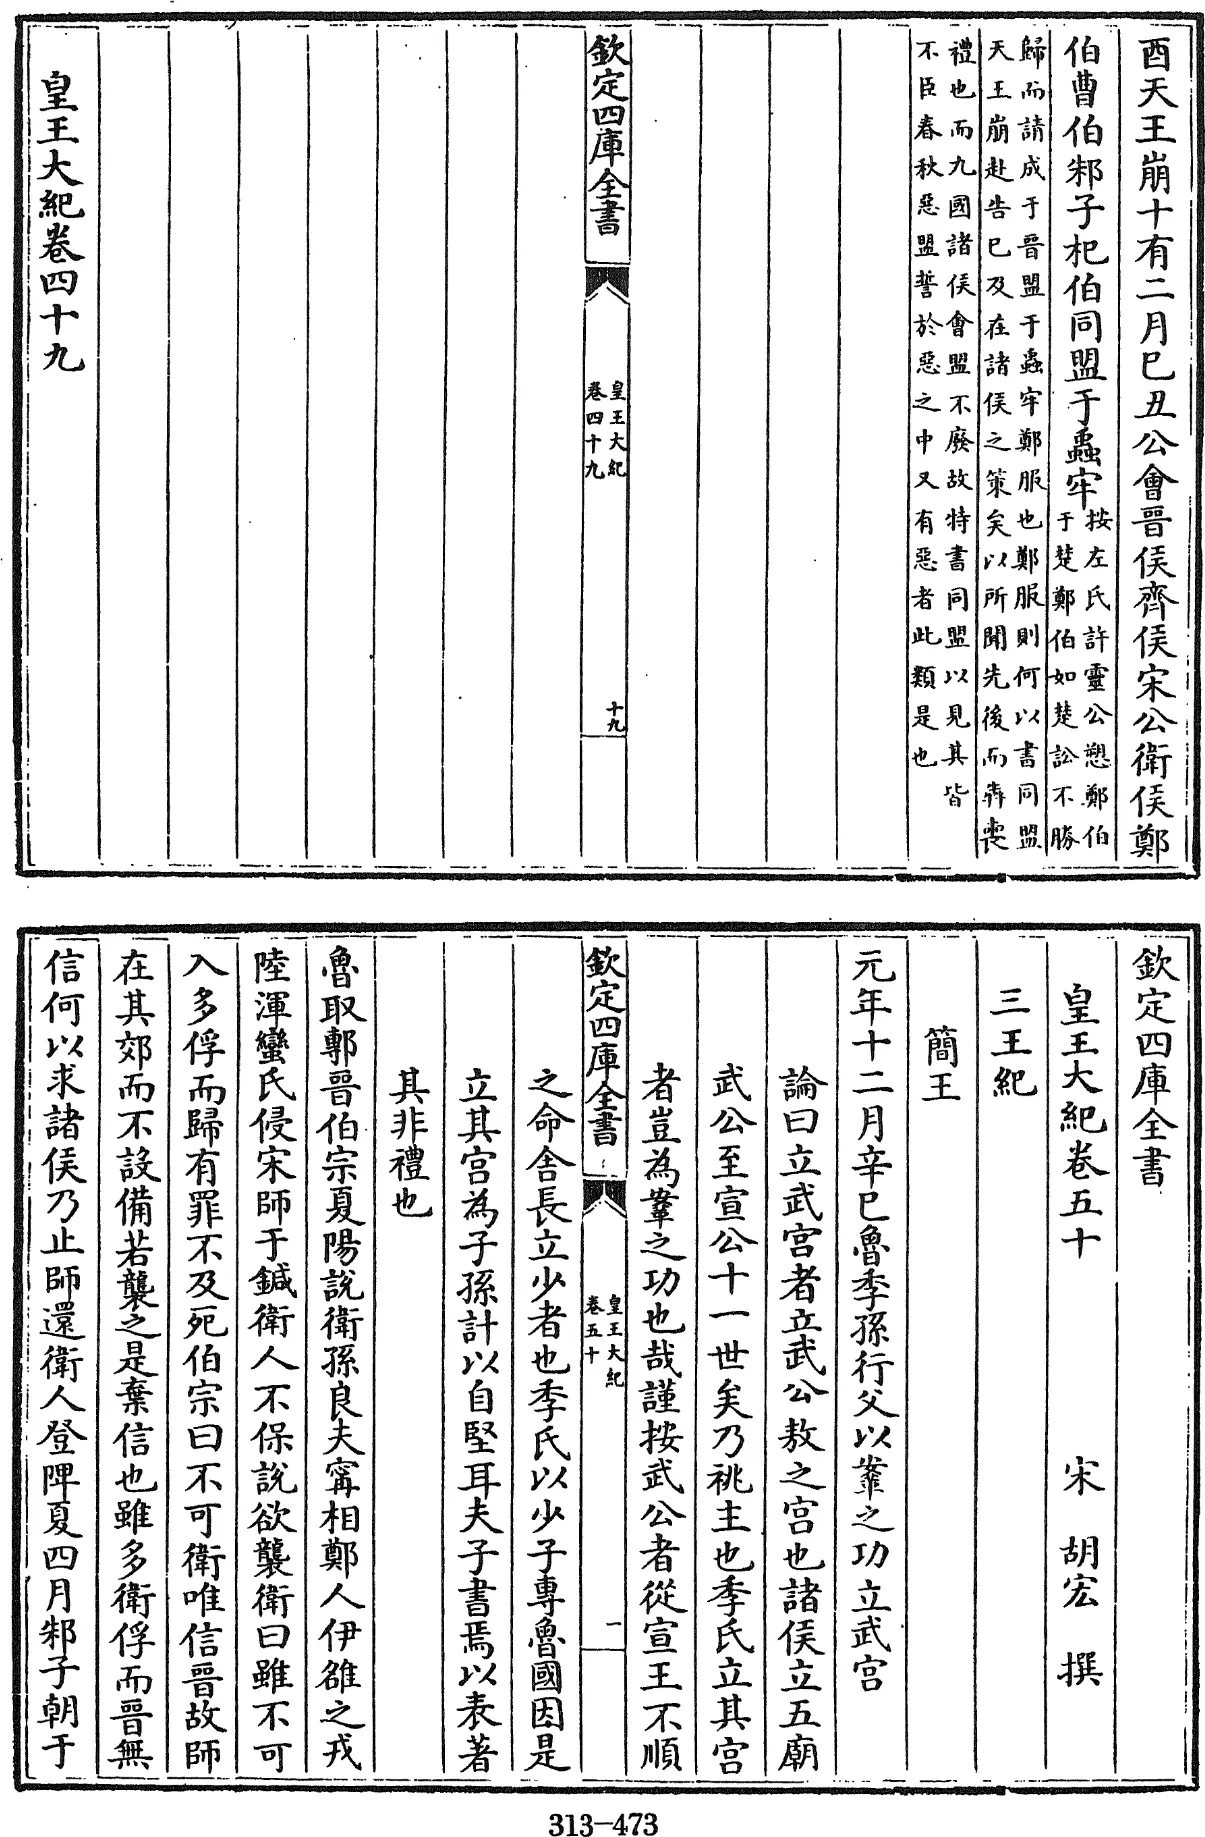 酉天王崩十有二月已丑公會晉侯齊侯宋公衛侯鄭
伯曹伯邾子杞伯同盟于蟲牢按左氏許靈公愬鄭伯
于楚鄭伯如楚訟不勝
歸而請成于晉盟于蟲牢鄭服也鄭服則何以書同盟
天王崩赴告已及在諸侯之策矣以所聞先後而犇喪
禮也而九國諸侯會盟不廢故特書同盟以見其皆
不臣春秋惡盟誓於惡之中又有惡者此類是也
欽定四庫全書
皇王大紀
卷四十九
十九
皇王大紀卷四十九
欽定四庫全書
皇王大紀卷五十
宋 胡宏 撰
三王紀
簡王
元年十二月辛巳魯季孫行父以鞌之功立武宮
論曰立武宮者立武公敖之宮也諸侯立五廟
武公至宣公十一世矣乃祧主也季氏立其宮
者豈為鞌之功也哉謹按武公者從宣王不順
欽定四庫全書
皇王大紀
卷五十
一
之命舍長立少者也季氏以少子專魯國因是
立其宮為子孫計以自堅耳夫子書焉以表著
其非禮也
魯取鄟晉伯宗夏陽說衛孫良夫甯相鄭人伊雒之戎
陸渾蠻氏侵宋師于鍼衛人不保說欲襲衛曰雖不可
入多俘而歸有罪不及死伯宗曰不可衛唯信晉故師
在其郊而不設備若襲之是棄信也雖多衛俘而晉無
信何以求諸侯乃止師還衛人登陴夏四月邾子朝于
313-473